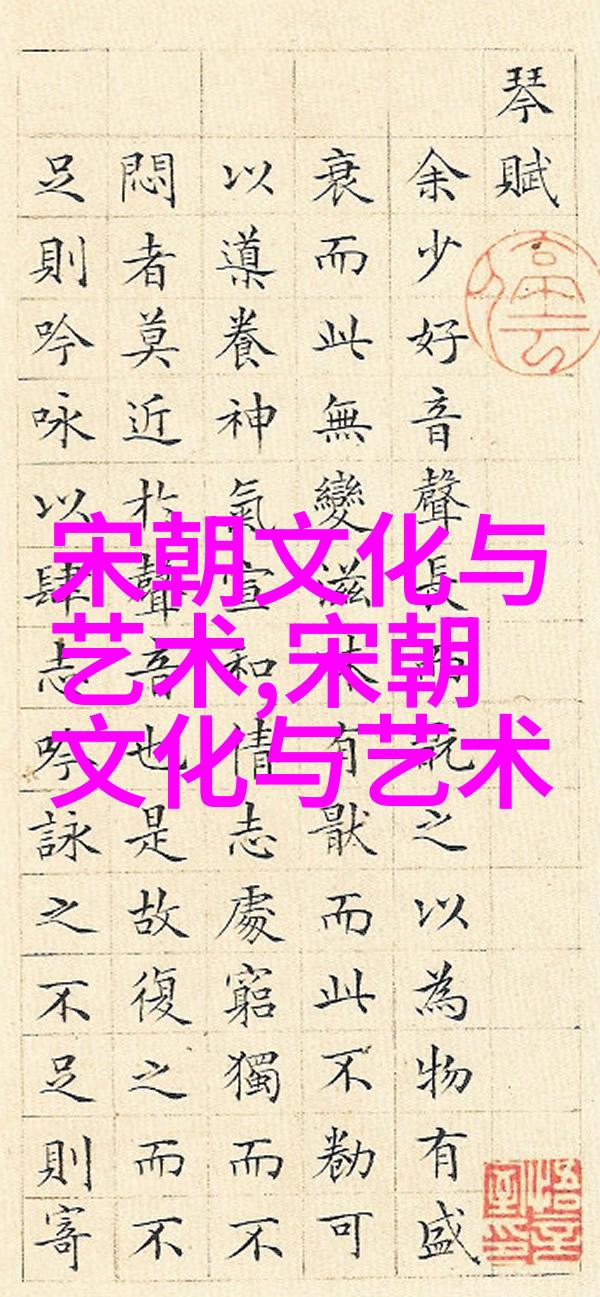 琴賦
余少好音聲長而翫之以為物有盛
衰而此無變滋味有猒而此不勌可
以導養神氣宣和情志處窮獨而不
悶者莫近於聲音也是故復之而不
足則吟咏以肆志吟詠之不足則寄
宋朝文化与
艺术,宋朝
文化与艺术